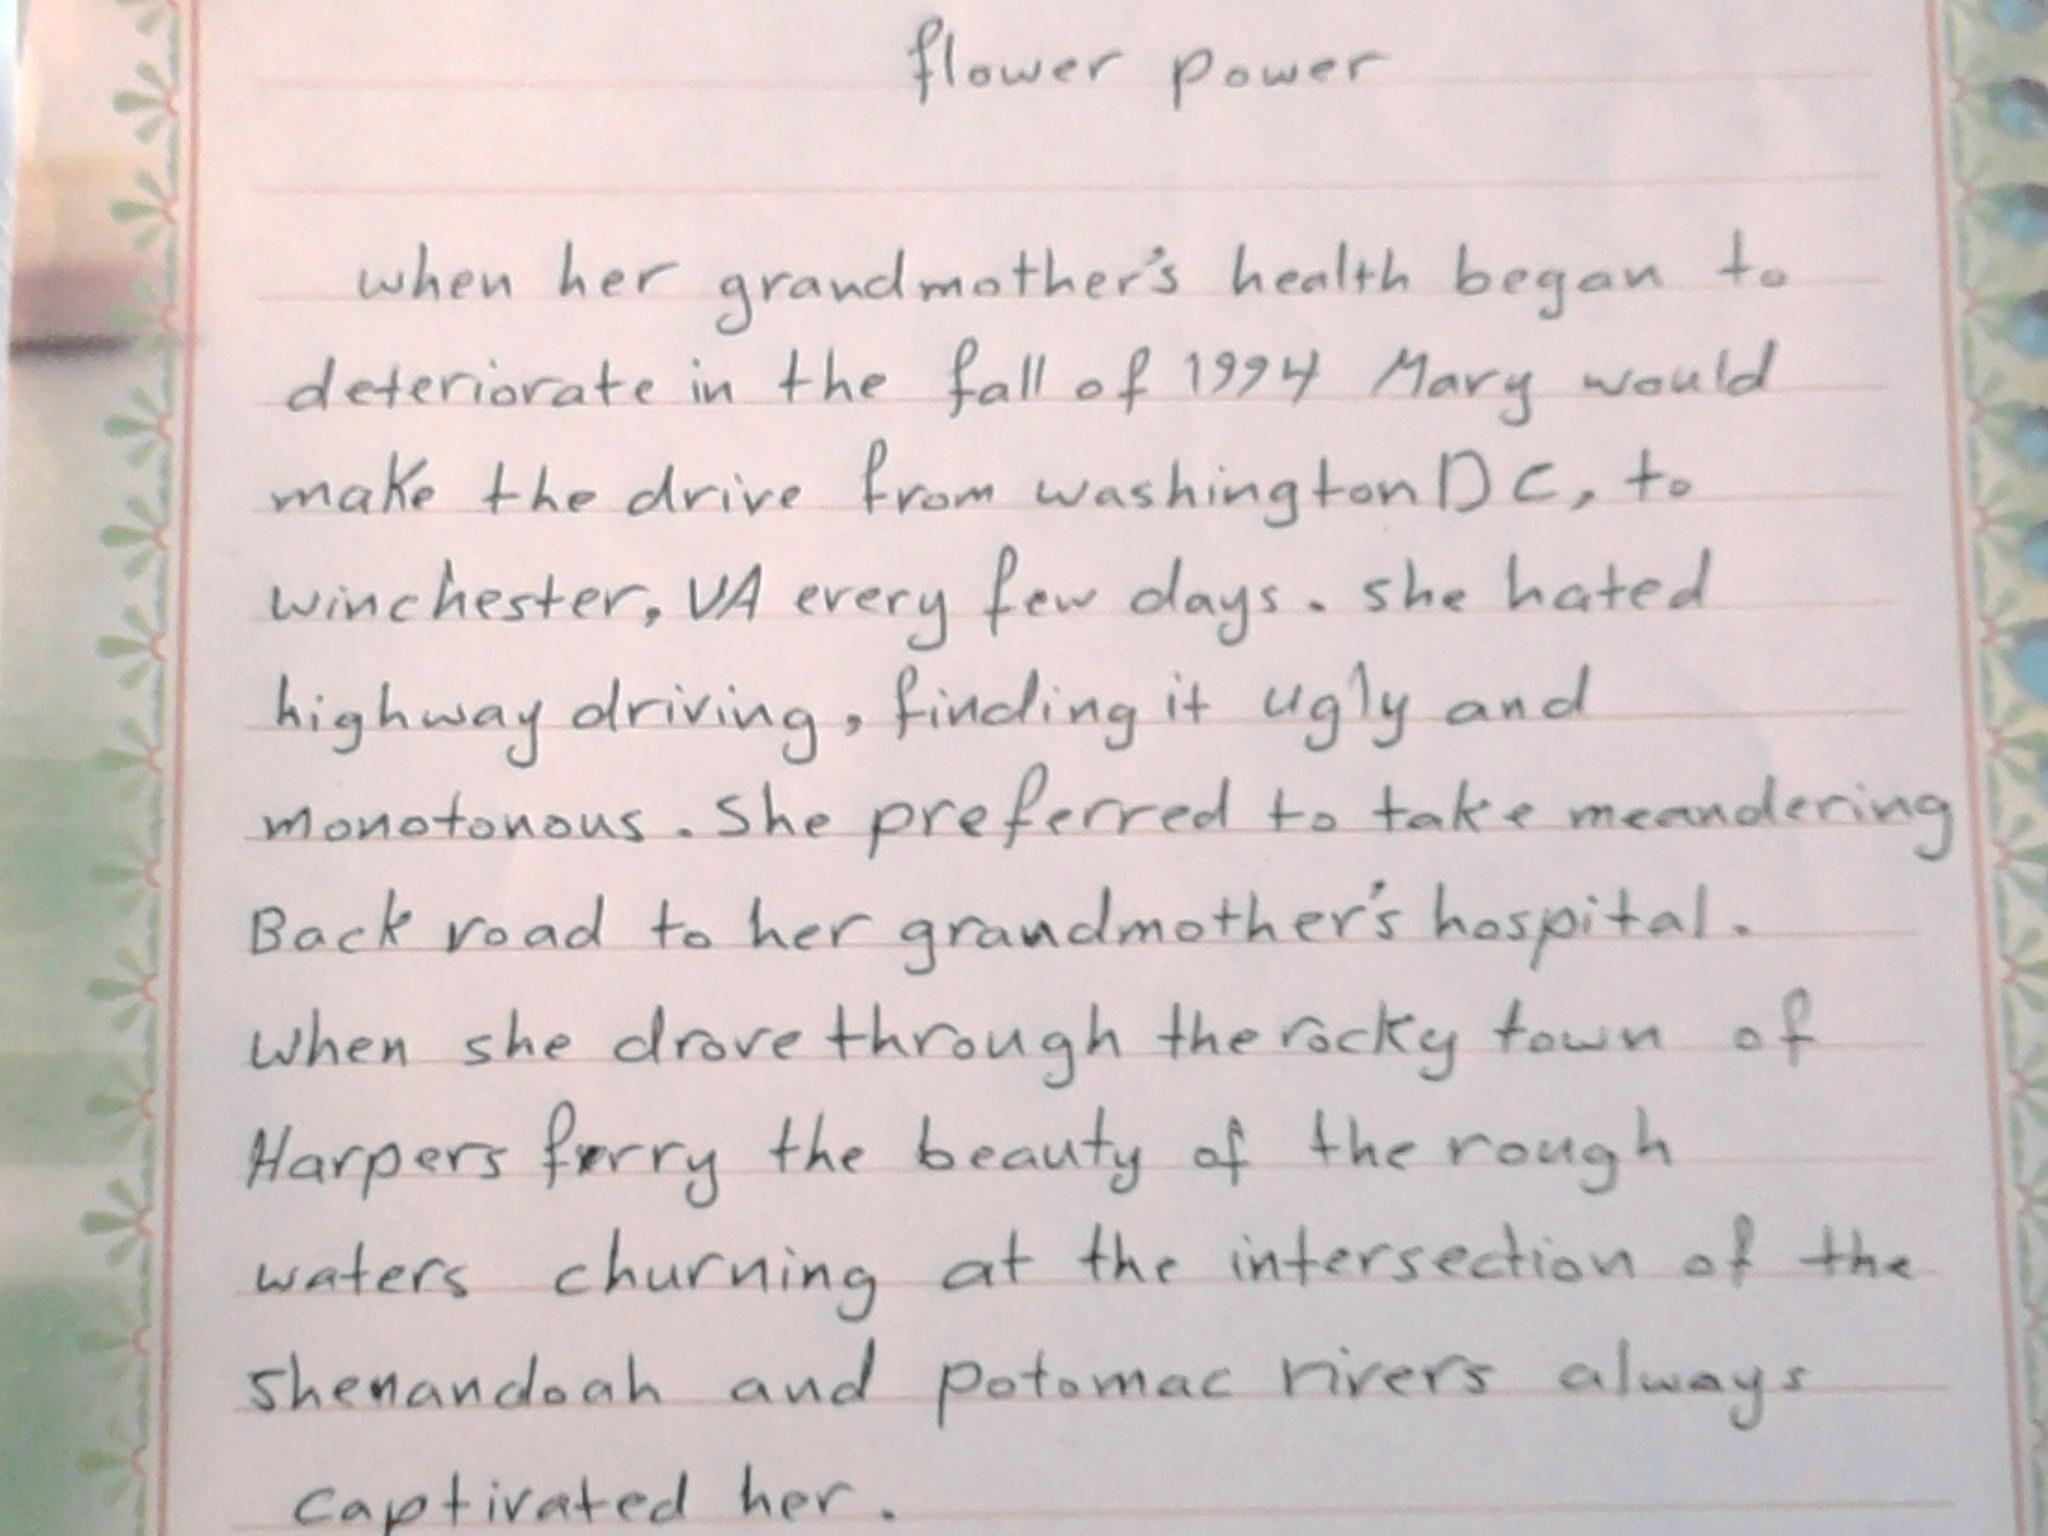 flower power
when her grandmother's health began to
deteriorate in the fall of 1994 Mary would
make the drive from washington DC, to
winchester, VA every few days. she hated
highway driving, finding it ugly and
monotonous. She preferred to take meandering
Back road to her grandmother's hospital.
When she drove through the rocky town of
Harpers ferry the beauty of the rough
waters churning at the intersection of the
shenandoah and potomac rivers always
captivated her.